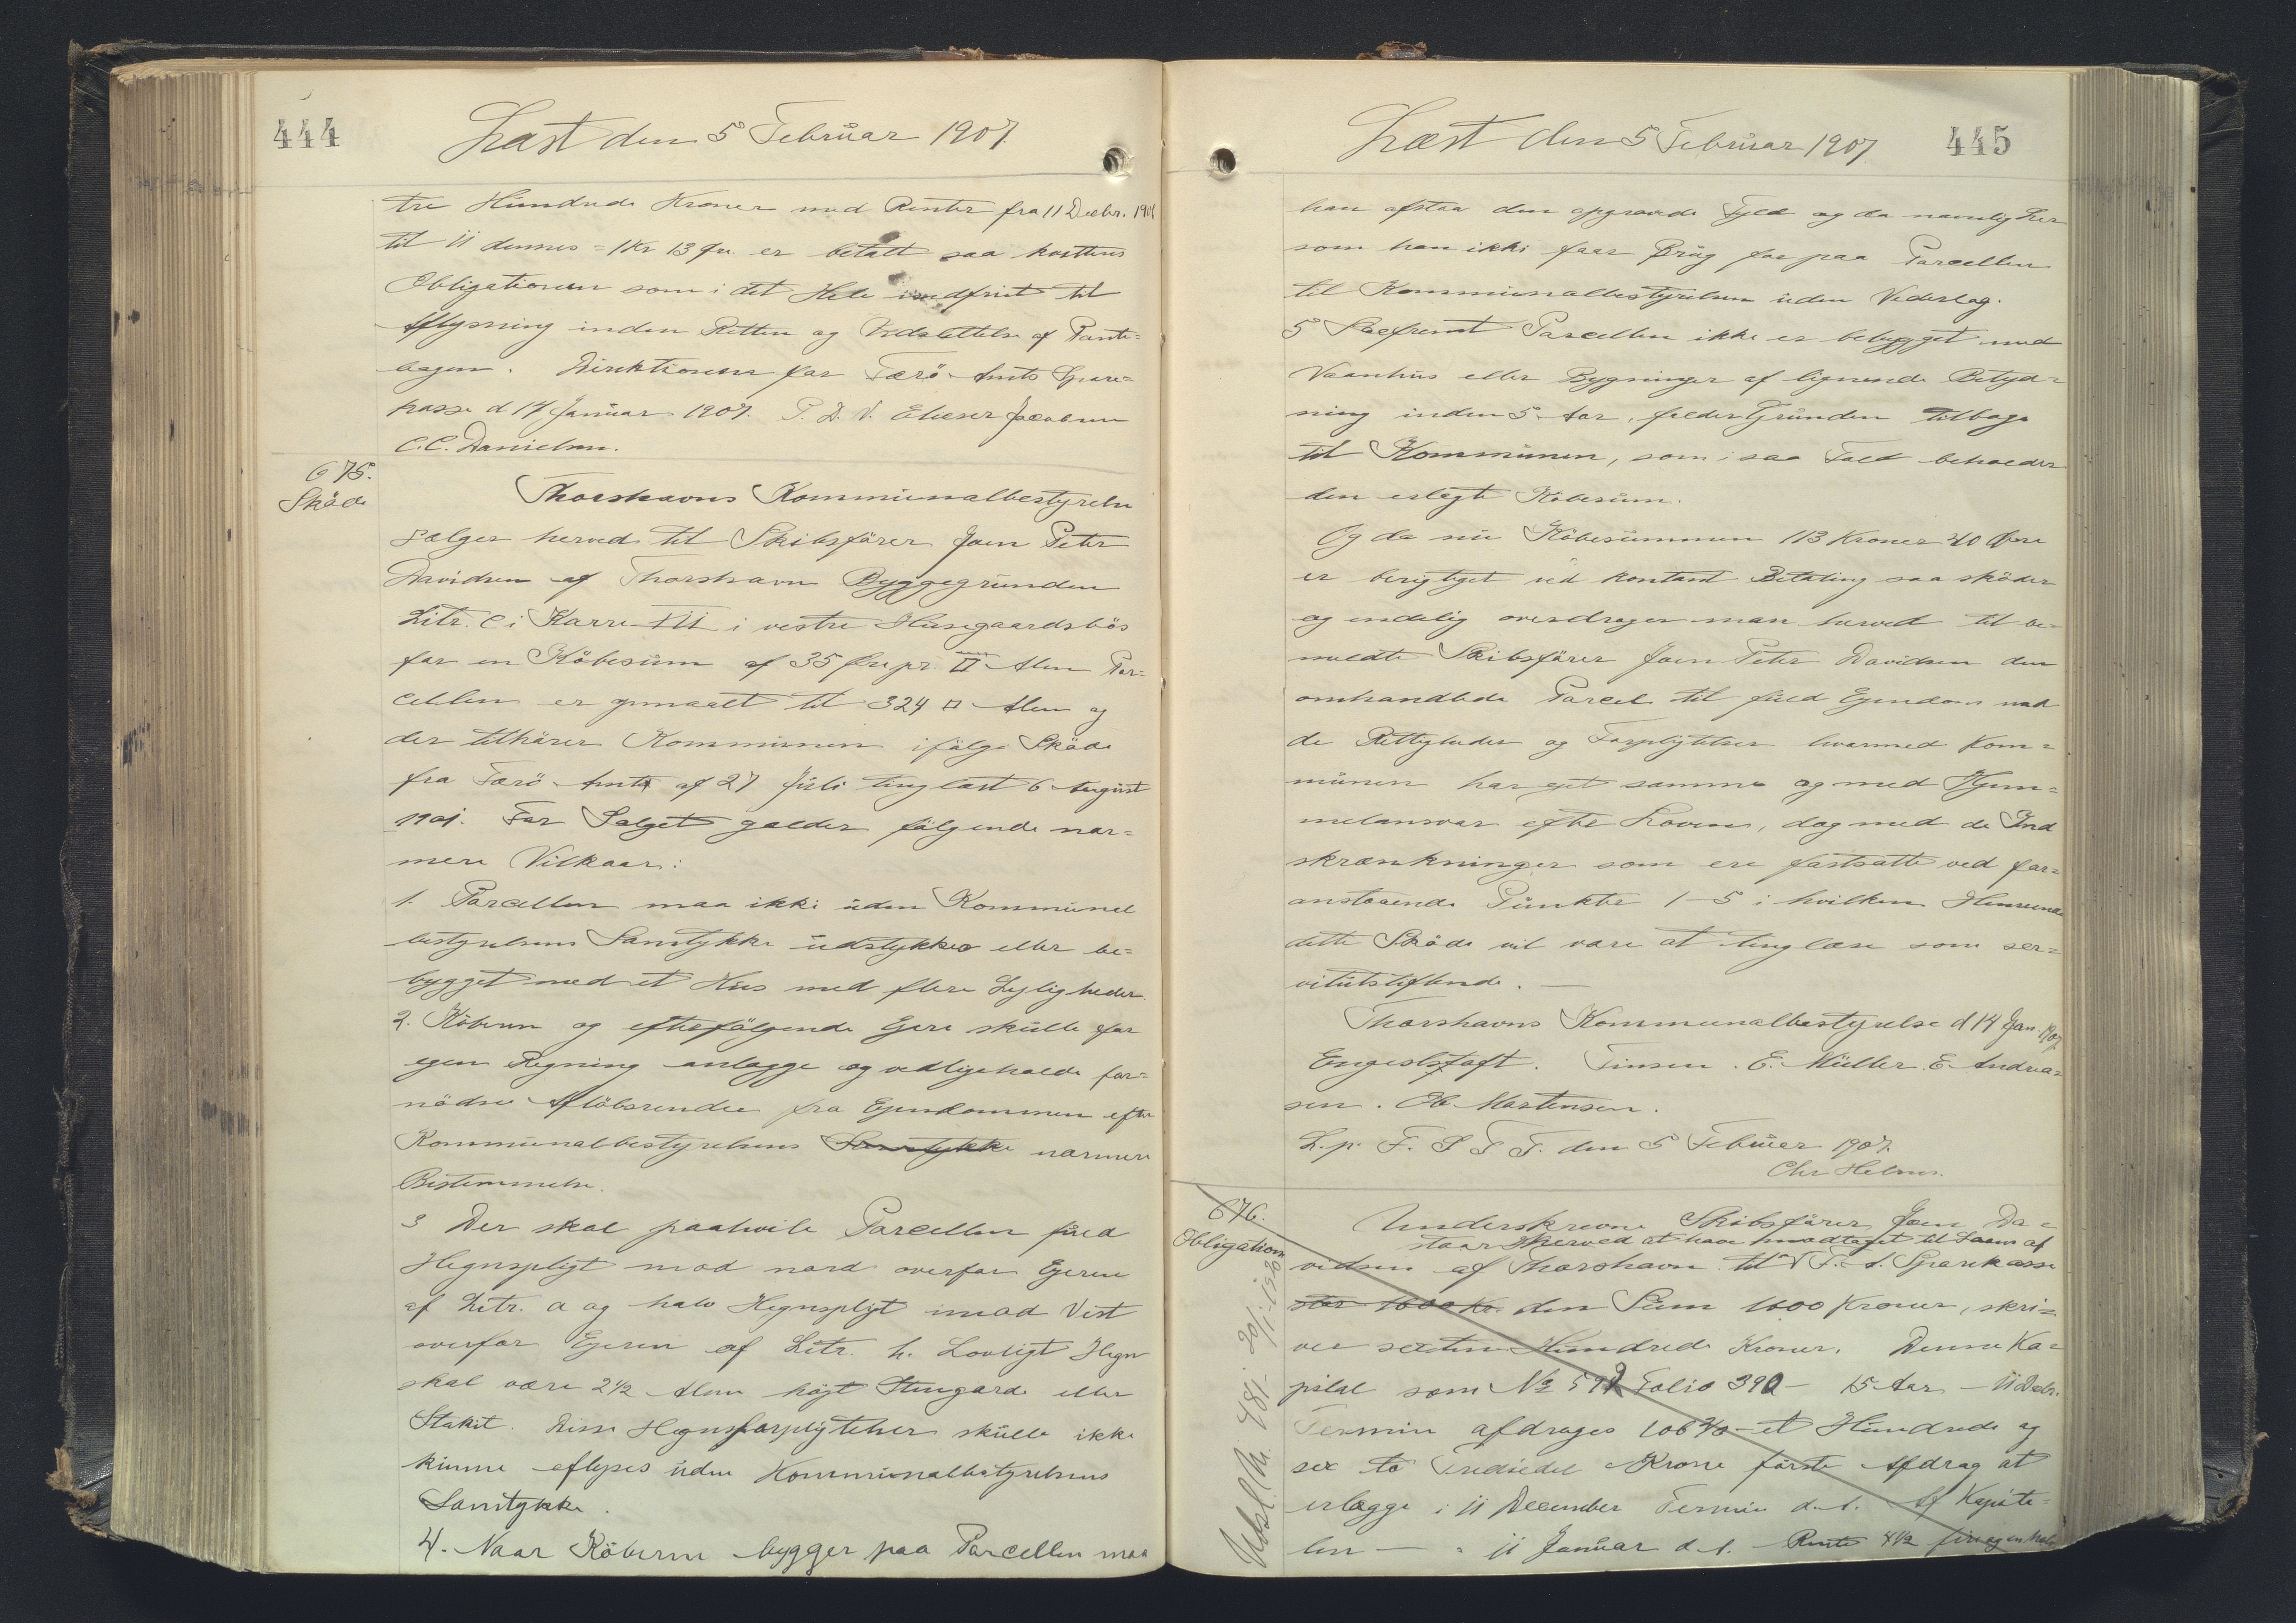 444
Læst den 5 Februar 1907.
tre Hundrede Kroner med Renter fra 11 Decbr. 1906
til 11 dennes = 1 Kr 13 Øre er betalt saa kvitteres
Obligationen som i det Hele indfriet til
Aflysning inden Retten og Udslettelse af Pante=
bogen. Direktionen for Færö Amts Spare=
kasse d 14 Januar 1907. P. D. V. Elieser Jacobsen
C. C. Danielsen.
675.
Sköde
Thorshavns Kommunalbestyrelse
sælger herved til Skibsförer Joen Peter
Davidsen af Thorshavn Byggegrunden
Litr. C i Karre III i vestre Husegaardsbös
for en Köbesum af 35 Øre pr. □ Alen Par=
cellen er opmaalt til 324 □ Alen og
der tilhörer Kommunen ifölge Sköde
fra Færö Amt af 27 Juli tinglæst 6 August
1901. For Salget gælder fölgende nær=
mere Vilkaar:
1. Parcellen maa ikke uden Kommunal
bestyrelsens Samtykke udstykkes eller be=
bygget med et Hus med flere Lejligheder.
2. Köberen og efterfölgende Ejere skulle for
egen Regning anlægge og vedligeholde for=
nödne Aflöbsrender fra Ejendommen efter
Kommunalbestyrelsens Samtykke nærmere
Bestemmelse.
3 Der skal paahvile Parcellen fuld
Hegnspligt mod nord overfor Ejeren
af Litr. a og halv Hegnspligt imod Vest
overfor Ejeren af Litr. h. Lovligt Hegn
skal være 2½ Alen höjt Stengærde eller
Stakit. Disse Hegnsforpligtelser skulle ikke
kunne aflyses uden Kommunalbestyrelsens
Samtykke.
4. Naar Köberen bygger paa Parcellen maa
Læst den 5 Februar 1907
445
han afstaa den opgravede Fyld og da navnlig Ler
som han ikke faar Brug for paa Parcellen
til Kommunalbestyrelsen uden Vederlag.
5 Saafremt Parcellen ikke er bebygget med
Vaanhus eller Bygninger af lignende Betyd=
ning inden 5 Aar, falder Grunden tilbage
til Kommunen, som i saa Fald beholder
den erlagte Köbesum.
Og da nu Köbesummen 113 Kroner 40 Øre
er berigtiget ved kontant Betaling saa sköder
og endelig overdrager man herved til be=
meldte Skibsförer Joen Peter Davidsen den
omhandlede Parcel til fuld Ejendom med
de Rettigheder og Forpligtelser hvormed Kom=
munen har ejet samme og med Hjem=
melansvar efter Loven, dog med de Ind
skrænkninger som ere fastsatte ved for=
anstaaende Punkter 1-5 i hvilken Henseende
dette Sköde vil være at tinglæse som ser=
vitutstiftende. —
Thorshavns Kommunalbestyrelse d 14 Jan. 1907
Engelstoft. Finsen. E. Müller. E. Andrea=
sen. Ob. Mortensen.
L. p. F. S T T. den 5 Februar 1907.
Chr Helms.
676.
Obligation
Underskrevne Skibsförer Joen Da=
staar herved at have modtaget til Laans af
vidsen af Thorshavn til F. A. Sparekasse
stor 1600 Kr. den Sum 1600 Kroner, skri=
ver sexten Hundrede Kroner. Denne Ka=
pital som № 597 Folio 390 — 15 Aar — 11 Decbr.
Termin afdrages 106 ⅔ - et Hundrede og
sex to Trediedel Krone förste Afdrag at
erlægge i 11 December Termin d. A. Af Kapita=
len — " 11 Januar d. A. Rente 4½ fire og en halv